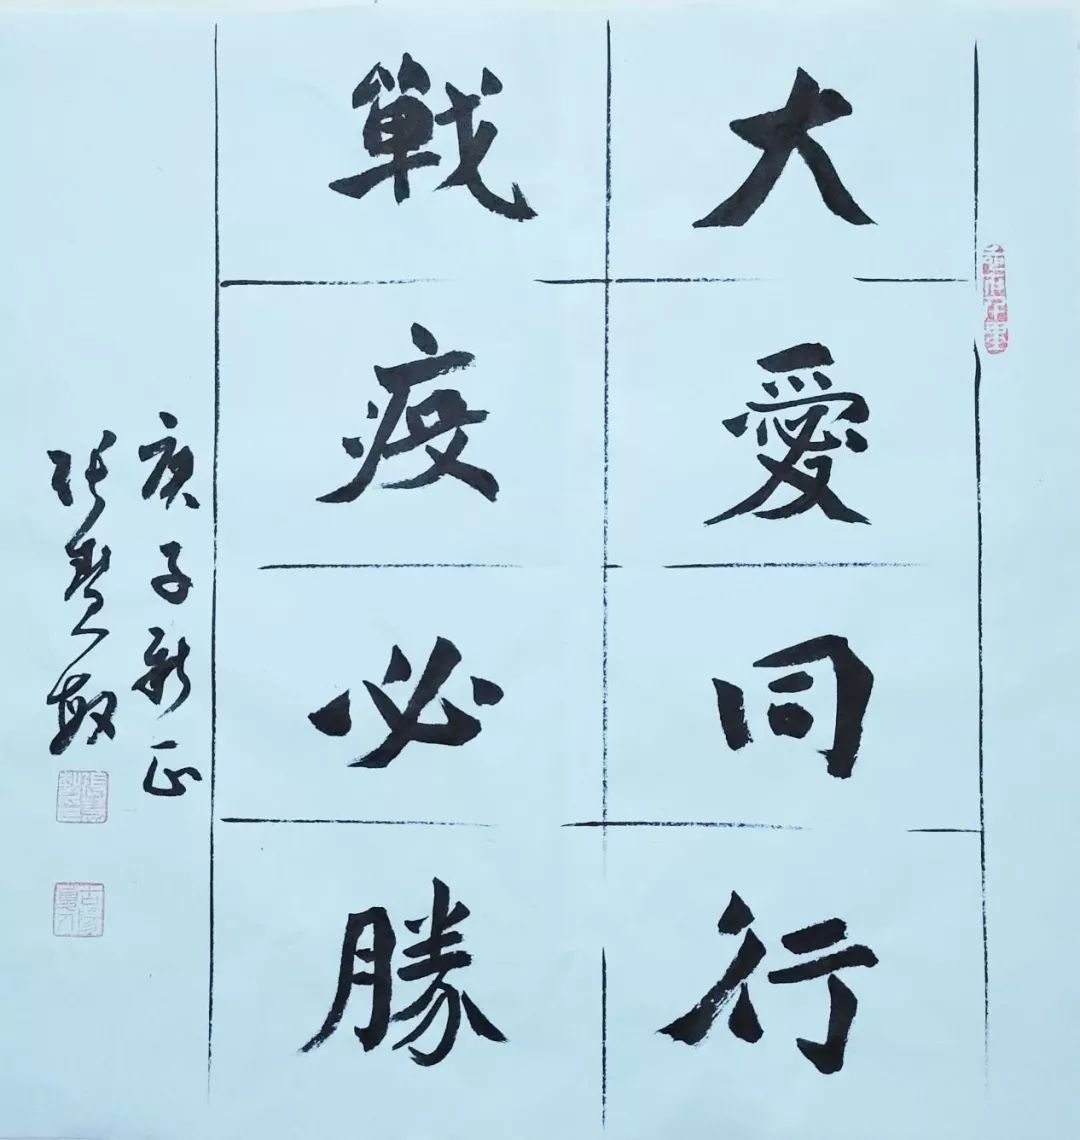 大愛同行
戰疫必勝
庚子新正
張春敏